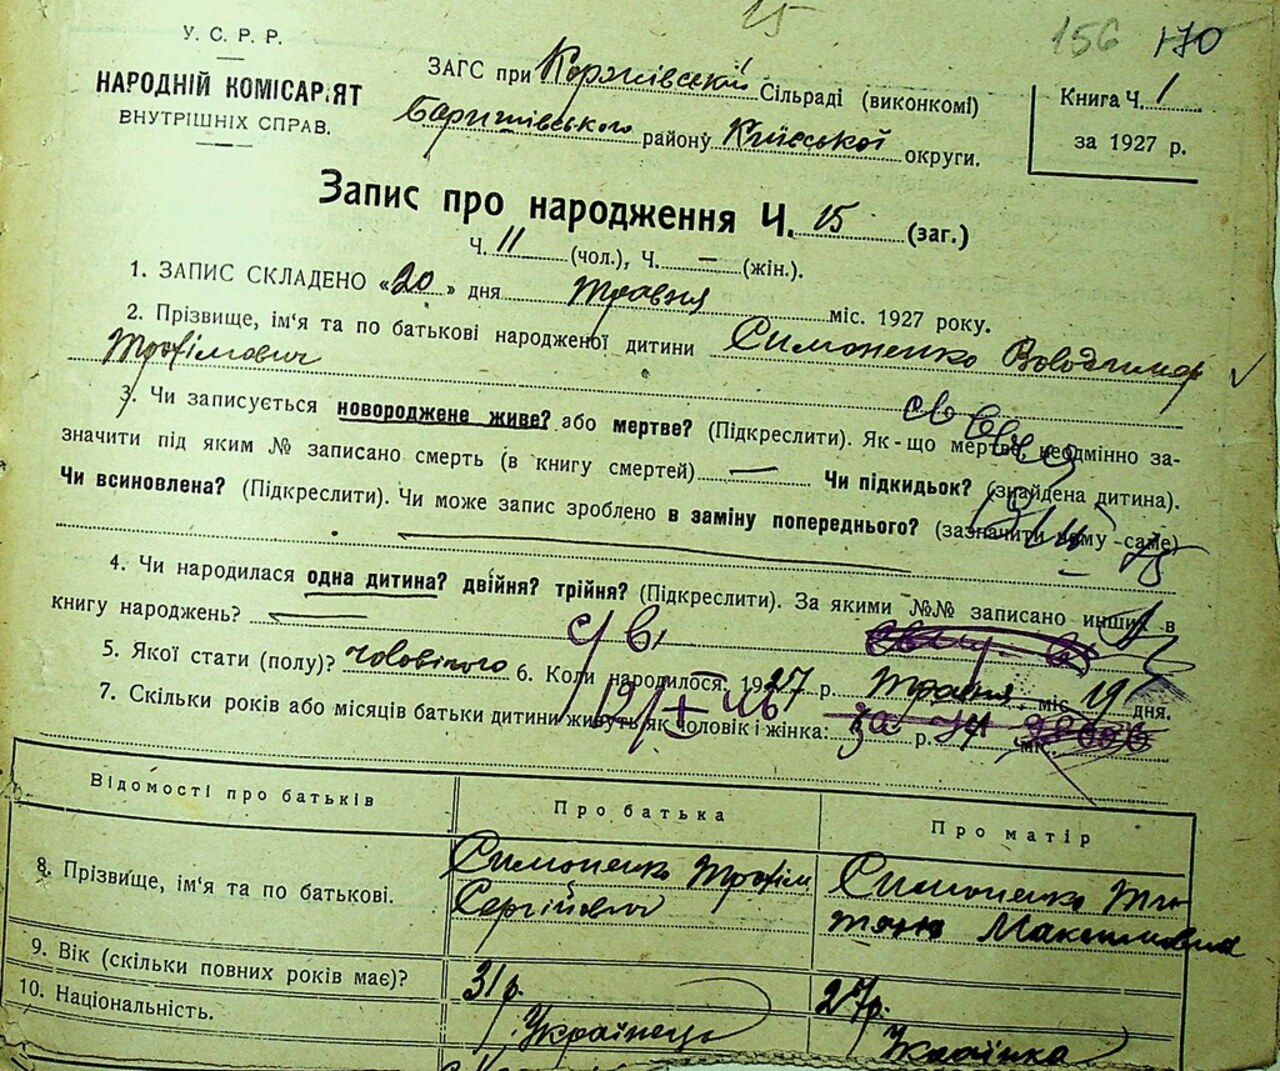 15
156 170
У. С. Р. Р.
НАРОДНІЙ КОМІСАР,ЯТ
ВНУТРІШНІХ СПРАВ.
ЗАГС при Коржівській Сільраді (виконкомі)
Баришівського району Київської округи.
Книга Ч. 1
за 1927 р.
Запис про народження Ч. 15 (заг.)
Ч. 11 (чол.), Ч. — (жін.).
1. ЗАПИС СКЛАДЕНО «20» дня травня міс. 1927 року.
2. Прізвище, ім'я та по батькові народженої дитини Симоненко Володимир
Трофімович
3. Чи записується новороджене живе? або мертве? (Підкреслити). Як-що мертве, неодмінно за-
значити під яким № записано смерть (в книгу смертей) — Чи підкидьок? (знайдена дитина).
Чи всиновлена? (Підкреслити). Чи може запис зроблено в заміну попереднього? (зазначити чому саме)
4. Чи народилася одна дитина? двійня? трійня? (Підкреслити). За якими №№ записано инших в
книгу народжень? —
5. Якої стати (полу)? чоловічого 6. Коли народилося: 1927 р. травня міс. 19 дня.
7. Скільки років або місяців батьки дитини живуть як чоловік і жінка: р. міс.
Відомості про батьків Про батька Про матір
8. Прізвище, ім'я та по батькові. Симоненко Трофім Сергійович Симоненко Тетяна Максимовна
9. Вік (скільки повних років має)? 31 р. 27 р.
10. Національність. Українець Українка